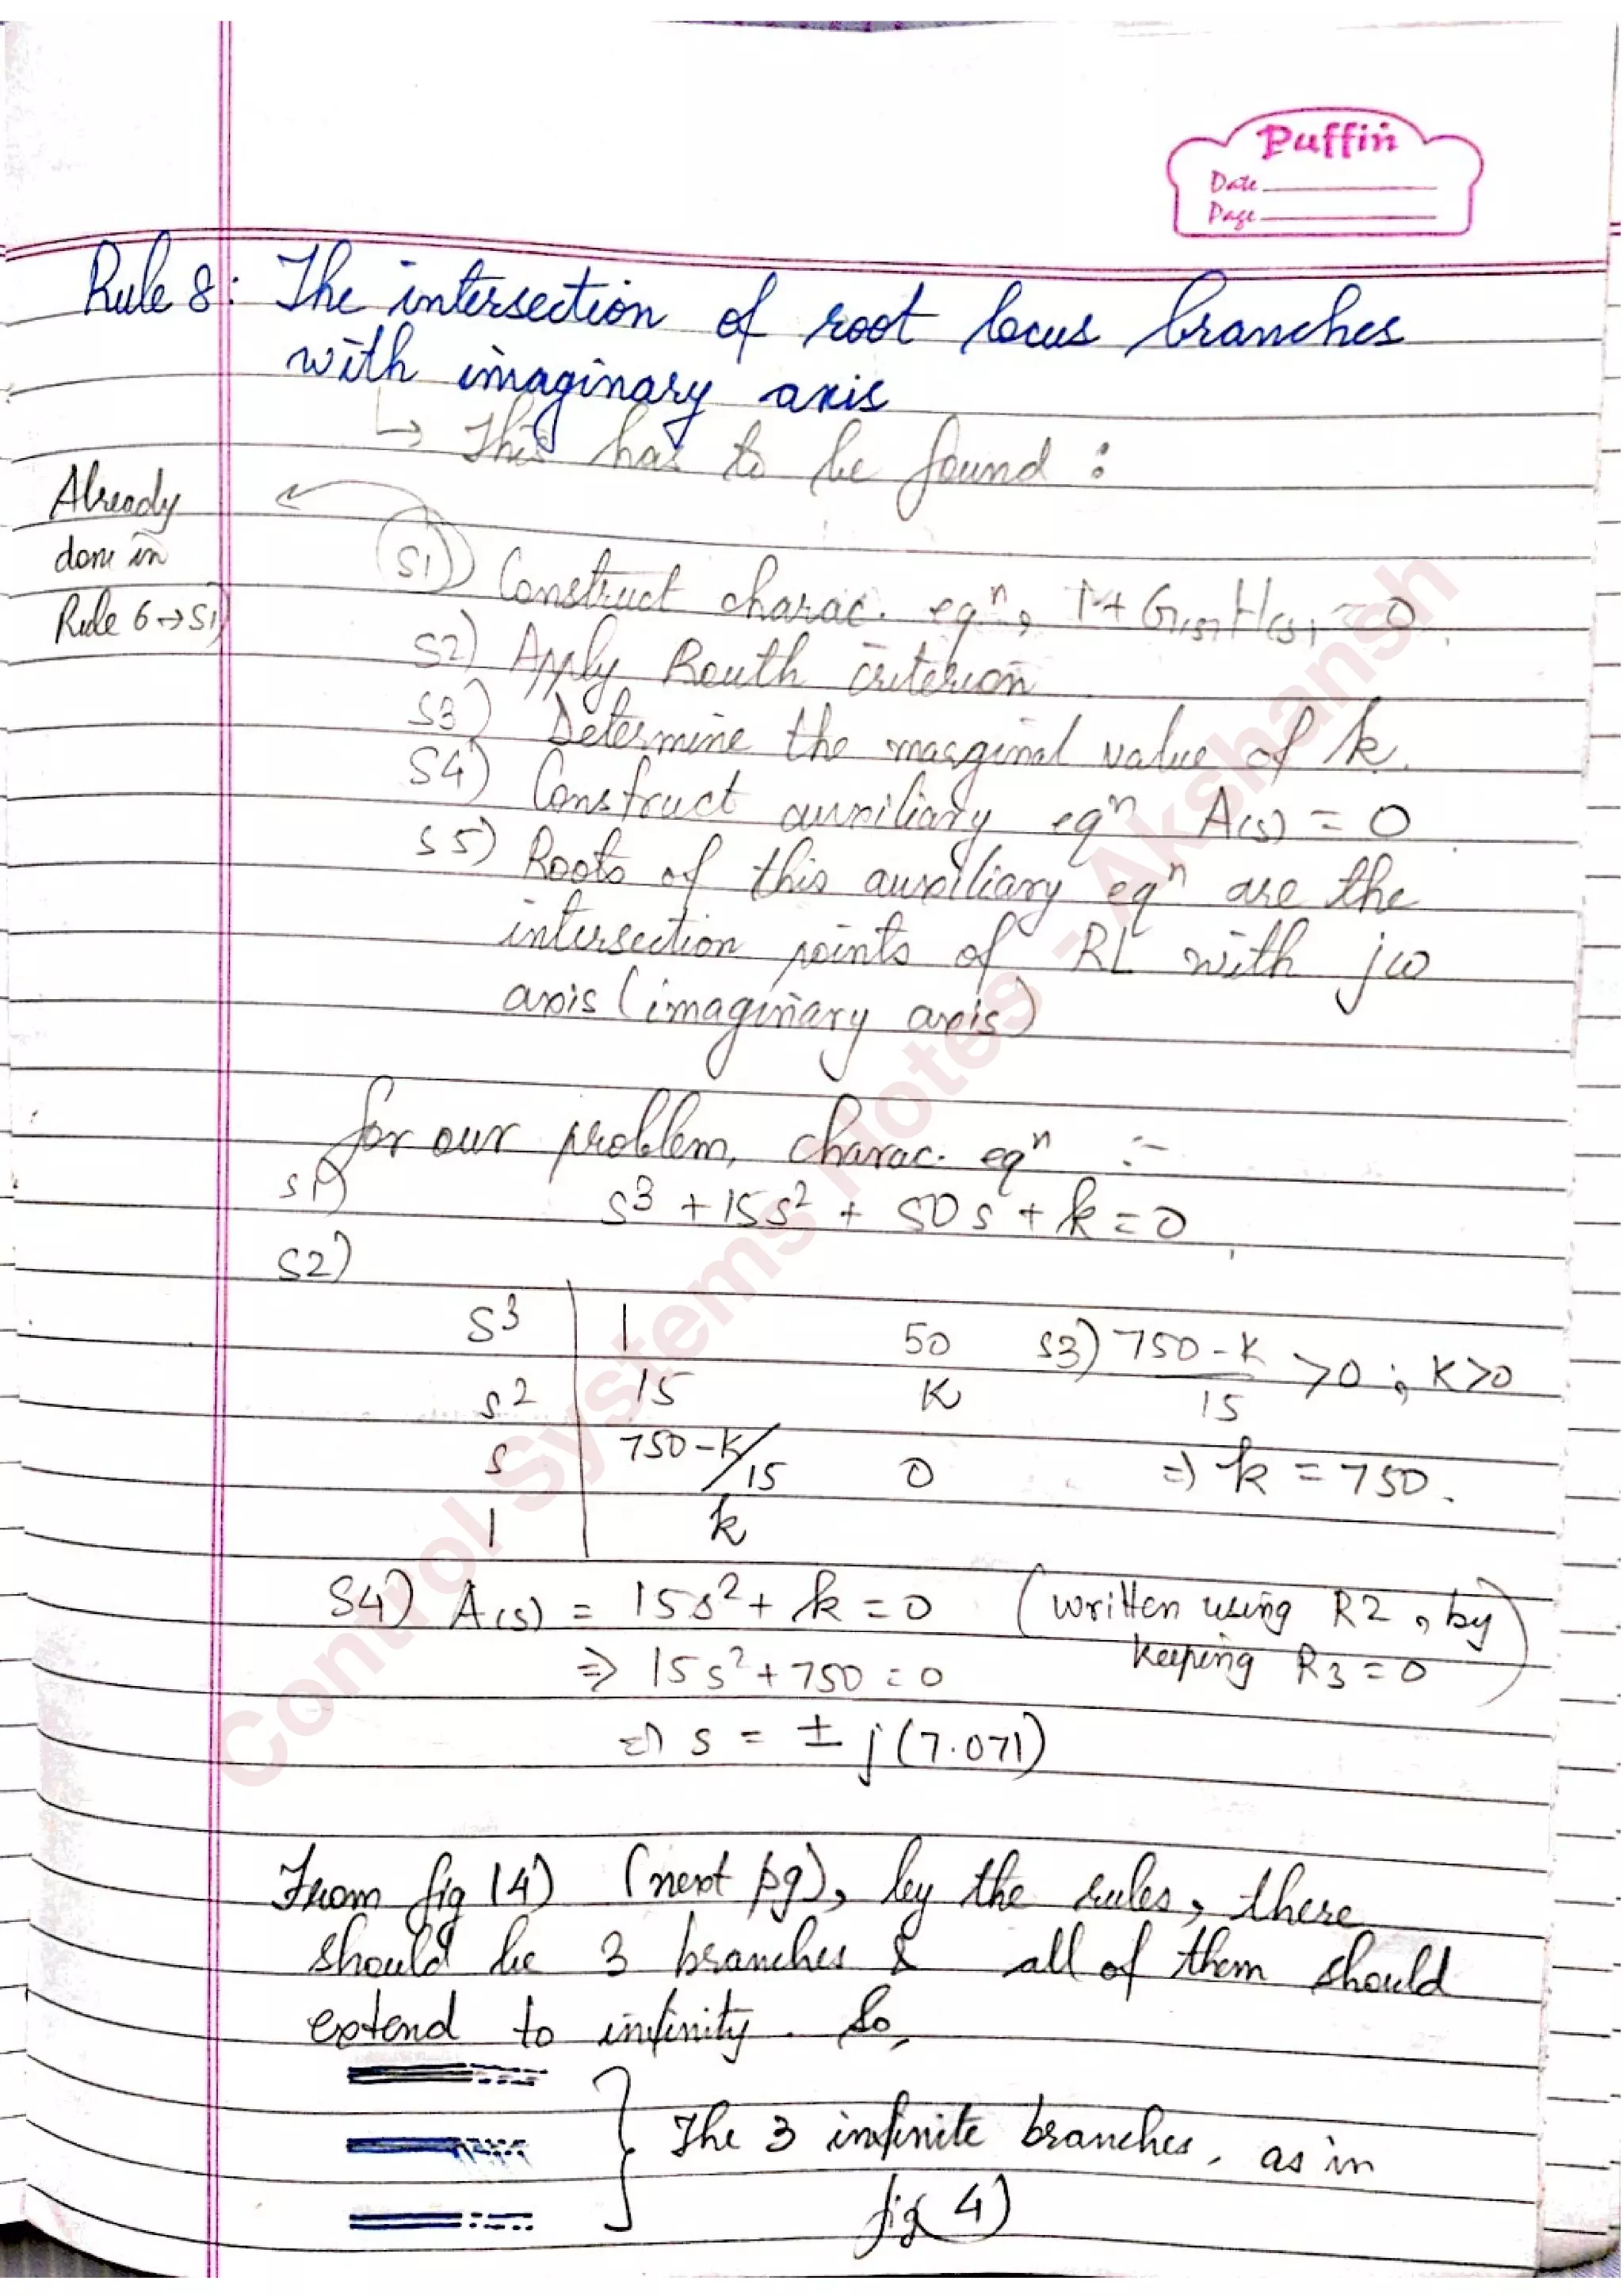 Puffin
Date
Page
Rule 8: The intersection of root locus branches
with imaginary axis
↳ This has to be found :
Already
done in
Rule 6→S1)
S1) Construct charac. eqⁿ, 1+G(s)H(s)=0.
S2) Apply Routh criterion
S3) Determine the marginal value of k.
S4) Construct auxiliary eqⁿ A(s) = 0
S5) Roots of this auxiliary eqⁿ are the
intersection points of RL with jω
axis (imaginary axis)
for our problem, charac. eqⁿ :-
S1) s³ + 15s² + 50s + k = 0
S2)
s³ 1 50 S3) 750-K/15 >0 ; K>0
s² 15 K
s 750-k/15 0 ⇒ k = 750.
1 k
S4) A(s) = 15s² + k = 0 (written using R2, by
keeping R3 = 0)
⇒ 15s² + 750 = 0
⇒ s = ± j(7.071)
From fig 14) (next pg), by the rules, there
should be 3 branches & all of them should
extend to infinity. So,
The 3 infinite branches, as in
fig 4)
Control Systems Notes - Akshansh